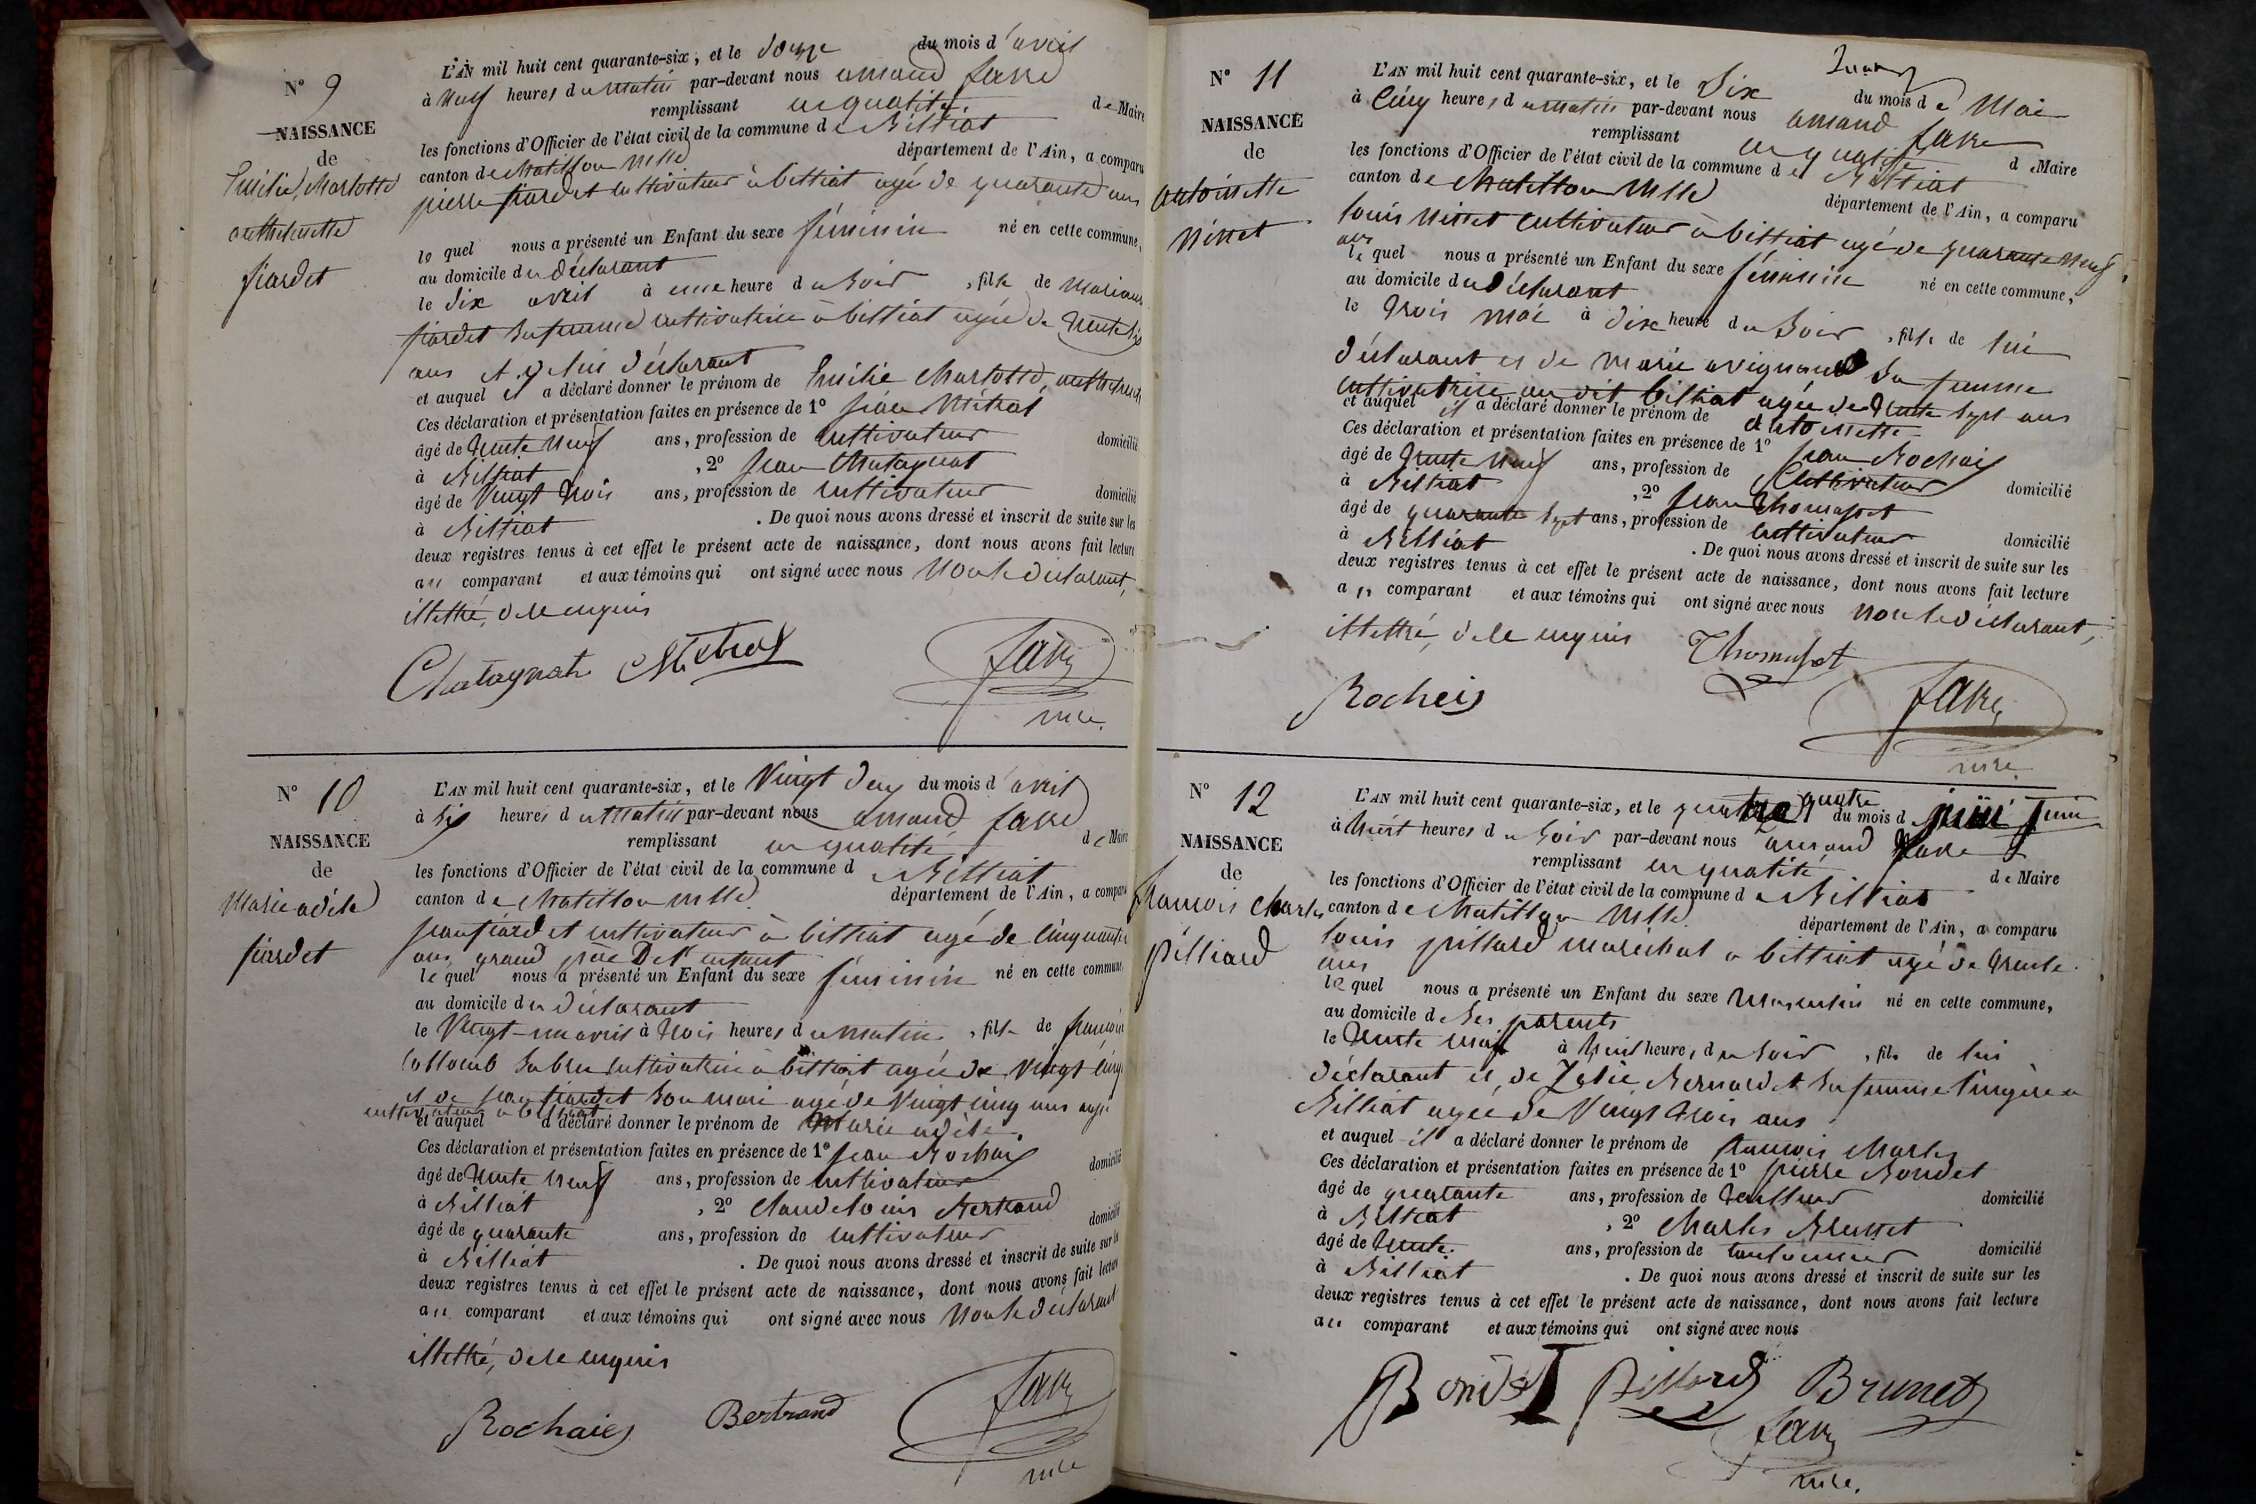 N° 9
NAISSANCE
de
Emilie, Charlotte
anthelmette
fiardet
L'AN mil huit cent quarante-six, et le douze du mois d'avril
à neuf heures du matin par-devant nous amand favre
remplissant en qualité de Maire
les fonctions d'Officier de l'état civil de la commune de Billiat
canton de Chatillon Mlle département de l'Ain, a comparu
pierre fiardet cultivateur à billiat agé de quarante ans
le quel nous a présenté un Enfant du sexe féminin né en cette commune,
au domicile du déclarant
le dix avril à une heure du soir, fille de mariane
fiardet sa femme cultivatrice à billiat agée de trente six
ans et de lui déclarant
et auquel il a déclaré donner le prénom de Emilie Charlotte, anthelmette
Ces déclaration et présentation faites en présence de 1° jean Métral
âgé de trente neuf ans, profession de cultivateur domicilié
à Billiat, 2° jean Chatagnat
âgé de Vingt trois ans, profession de cultivateur domicilié
à Billiat. De quoi nous avons dressé et inscrit de suite sur les
deux registres tenus à cet effet le présent acte de naissance, dont nous avons fait lecture
au comparant et aux témoins qui ont signé avec nous non le déclarant,
illettré, de ce enquis
Chatagnat Métral favre
mre.
N° 10
NAISSANCE
de
Marie adèle
fiardet
L'AN mil huit cent quarante-six, et le Vingt deux du mois d'avril
à six heures du matin par-devant nous amand favre
remplissant en qualité de Maire
les fonctions d'Officier de l'état civil de la commune d Billiat
canton de Chatillon mlle département de l'Ain, a comparu
jean fiardet cultivateur à billiat agé de cinquante
ans, grand père De l'enfant
le quel nous a présenté un Enfant du sexe féminin né en cette commune,
au domicile du déclarant
le Vingt-un avril à trois heures du matin, fille de françoise
Collomb sa bru cultivatrice à billiat agée de Vingt cinq
et de jean fiardet son mari agé de Vingt cinq ans aussi
cultivateur à billiat
et auquel a déclaré donner le prénom de Marie adèle
Ces déclaration et présentation faites en présence de 1° jean Rochaix
âgé de trente neuf ans, profession de cultivateur domicilié
à Billiat, 2° Claude louis Bertrand
âgé de quarante ans, profession de cultivateur domicilié
à Billiat. De quoi nous avons dressé et inscrit de suite sur les
deux registres tenus à cet effet le présent acte de naissance, dont nous avons fait lecture
au comparant et aux témoins qui ont signé avec nous Non le déclarant
illettré, de ce enquis
Rochaix Bertrand favre
mre
N° 11
NAISSANCE
de
antoinette
Ninet
L'AN mil huit cent quarante-six, et le Six du mois de Mai
à Cinq heures du matin par-devant nous amand favre
remplissant en qualité de Maire
les fonctions d'Officier de l'état civil de la commune de Billiat
canton de Chatillon Mlle département de l'Ain, a comparu
louis Ninet cultivateur à billiat agé de quarante neuf
ans
le quel nous a présenté un Enfant du sexe féminin né en cette commune,
au domicile du déclarant
le trois mai à dix heure du soir, fille de lui
déclarant et de marie avignand sa femme
cultivatrice au dit billiat agée de trente sept ans
et auquel il a déclaré donner le prénom de antoinette
Ces déclaration et présentation faites en présence de 1° jean Rochaix
âgé de trente neuf ans, profession de Cultivateur domicilié
à Billiat, 2° jean thomasset
âgé de quarante sept ans, profession de cultivateur domicilié
à Billiat. De quoi nous avons dressé et inscrit de suite sur les
deux registres tenus à cet effet le présent acte de naissance, dont nous avons fait lecture
au comparant et aux témoins qui ont signé avec nous non le déclarant,
illettré, de ce enquis Thomasset
Rochaix favre
mre.
N° 12
NAISSANCE
de
françois Charles
pilliard
L'AN mil huit cent quarante-six, et le quatre du mois de juin Juin
à huit heures du soir par-devant nous amand favre
remplissant en qualité de Maire
les fonctions d'Officier de l'état civil de la commune de Billiat
canton de Chatillon Mlle département de l'Ain, a comparu
louis pillard maréchal à billiat agé de trente
ans
le quel nous a présenté un Enfant du sexe Masculin né en cette commune,
au domicile de ses parents
le trente mai à huit heures du soir, fils de lui
déclarant et de Zélie Bernardet sa femme lingère à
Billiat agée de Vingt trois ans
et auquel il a déclaré donner le prénom de françois Charles
Ces déclaration et présentation faites en présence de 1° pierre Bondet
âgé de quarante ans, profession de tailleur domicilié
à Billiat, 2° Charles Brunet
âgé de trente ans, profession de cantonnier domicilié
à Billiat. De quoi nous avons dressé et inscrit de suite sur les
deux registres tenus à cet effet le présent acte de naissance, dont nous avons fait lecture
au comparant et aux témoins qui ont signé avec nous
Bondet Pillard Brunet
favre
mre.